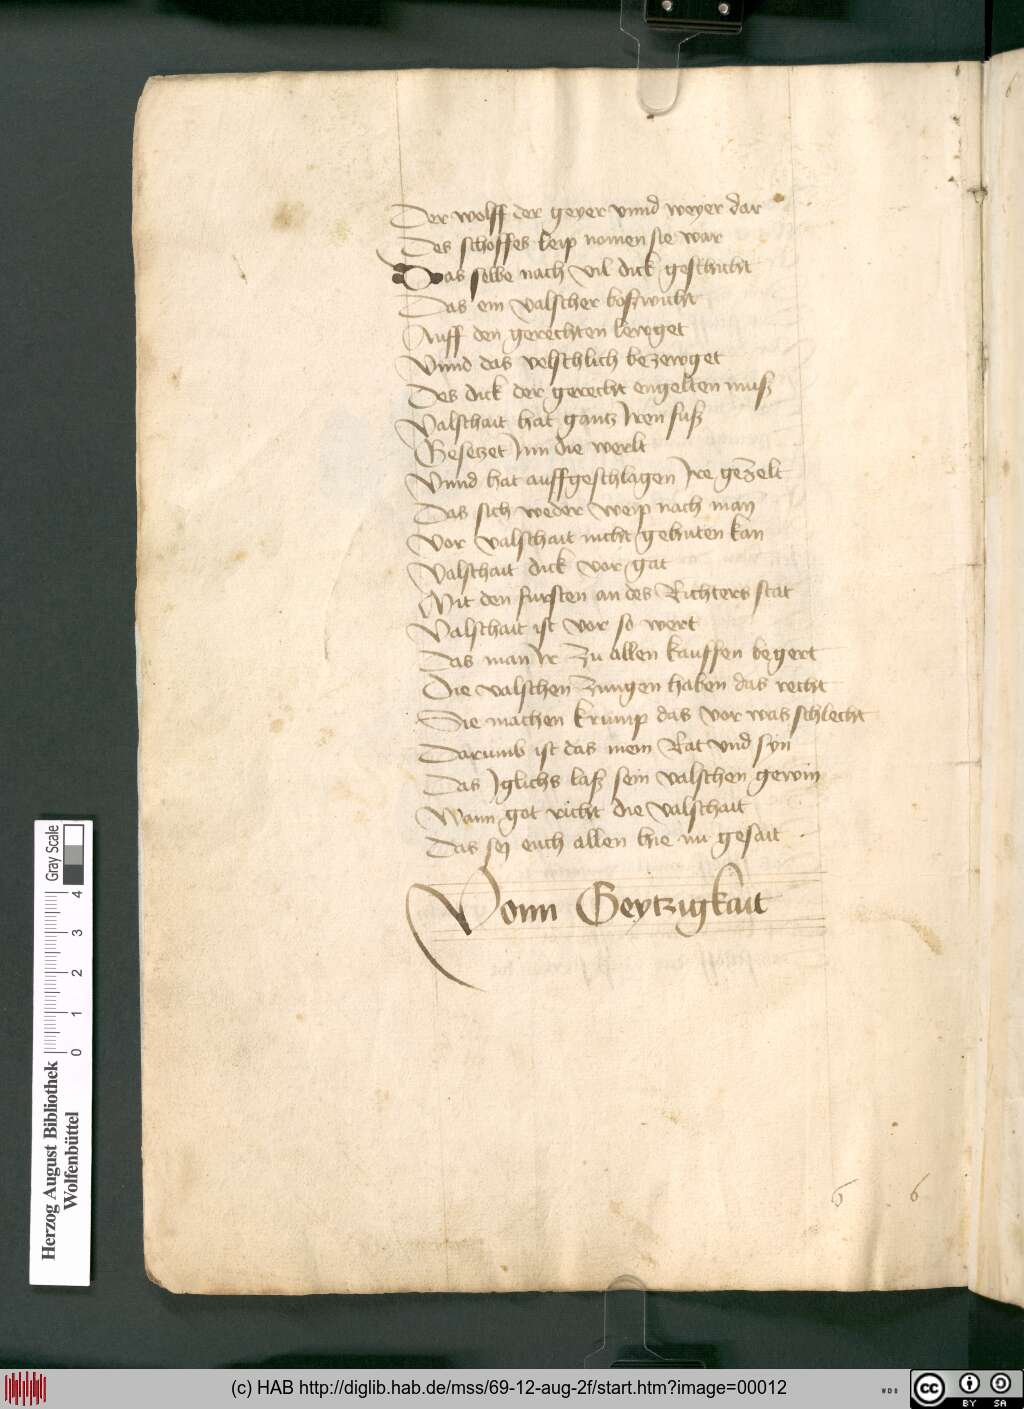 Der wolff der geyer vnnd weyer dar
Des schoffes leip nomen sie war
Das selbe nach vil dick geschicht
Das ein valscher boszwicht
Auff den gerechten lewget
Vnnd das velschlich bezewget
Des dick der gerecht engelten musz
Valschait hat gantz Jren fusz
Gesetzet Jnn die werlt
Vnnd hat auffgeschlagen Jre gezelt
Das sich weder weip nach man
Vor valschait nicht gehuten kan
Valschait dick vor gat
Mit den fursten an des Richters stat
Valschait ist vor so wert
Das man Jr zu allen kauffen begert
Die valschen zungen haben das recht
Sie machen krump das vor was schlecht
Darumb ist das mein Rat vnd syn
Das Jglichs lasz sein valschen gewin
Wann got richt die valschait
Das sey euch allen hie nu gesait
Vonn Geytzigkait
6 6
Herzog August Bibliothek
Wolfenbüttel
0 1 2 3 4
Gray Scale
(c) HAB http://diglib.hab.de/mss/69-12-aug-2f/start.htm?image=00012
WDB
cc BY SA